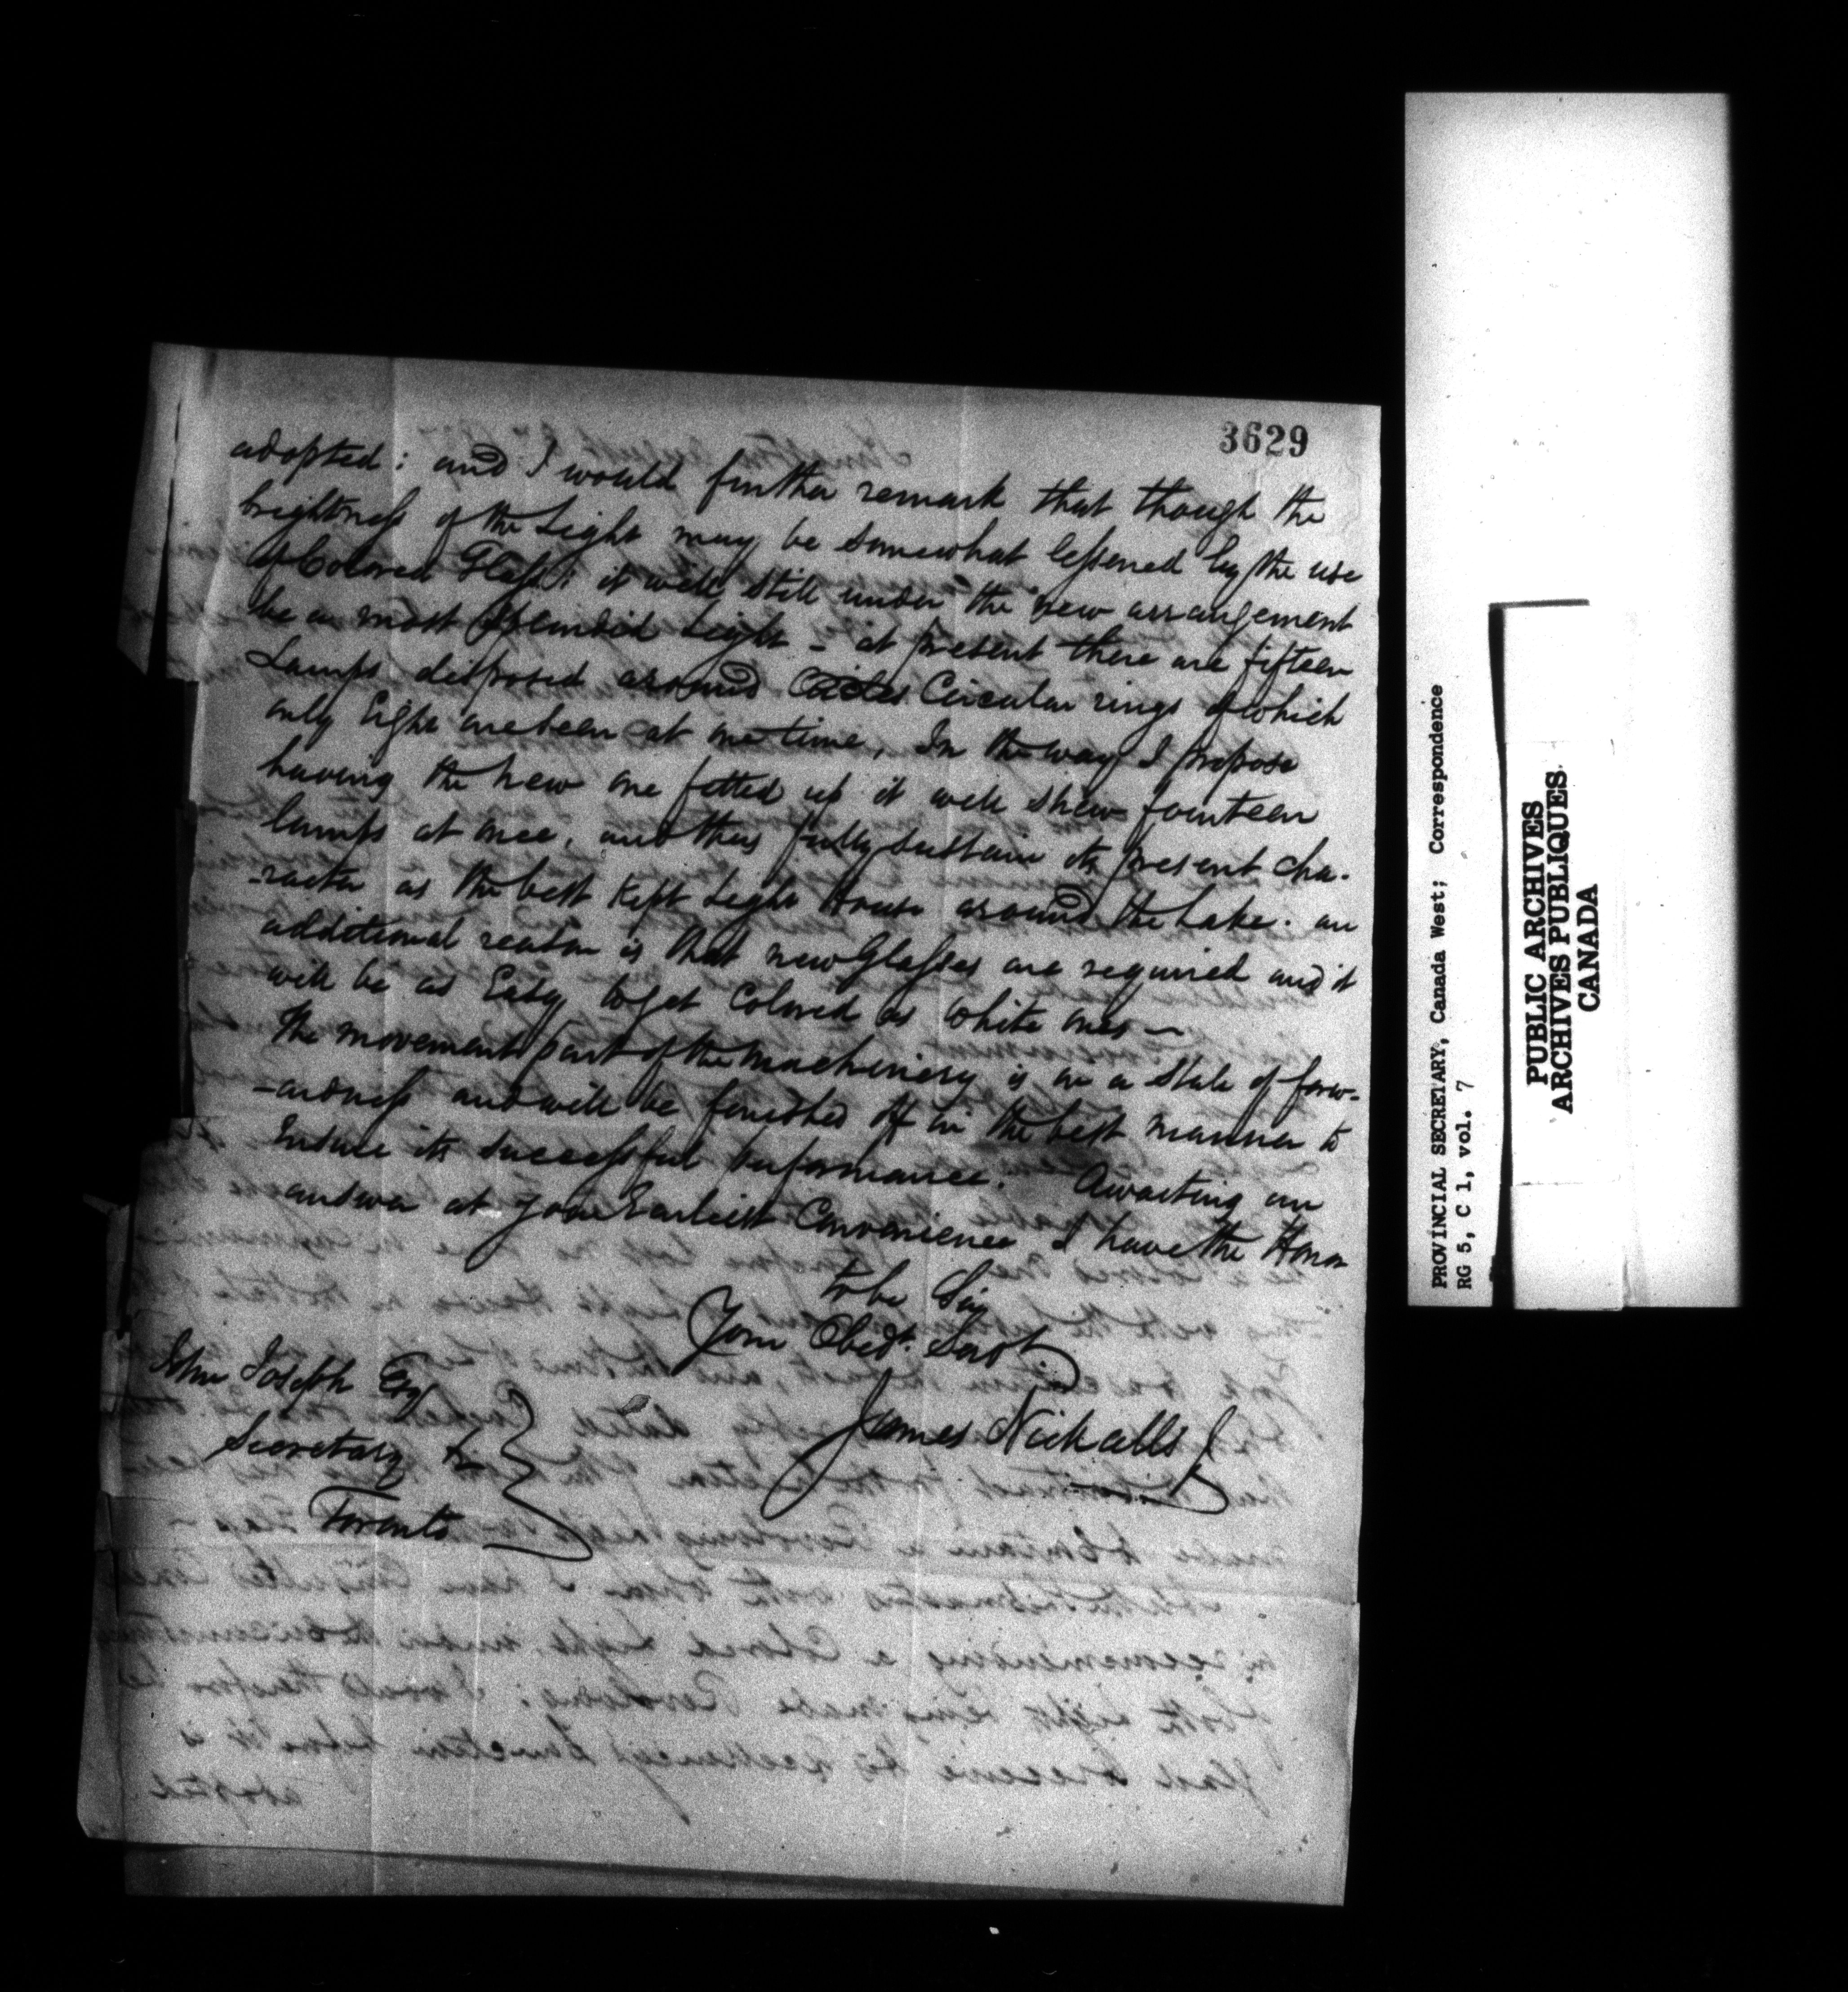 3629
adopted: and I would further remark that though the
brightness of the Light may be somewhat lessened by the use
of Colored Glass; it will still under the new arrangement
be a most splendid Light - at present there are fifteen
Lamps disposed around Circular rings of which
only Eight are seen at one time, In the way I propose
having the new one fitted up it will shew fourteen
lamps at once, and thus fully sustain its present cha-
-racter as the best kept Light House around the Lake. an
additional reason is that new Glasses are required and it
will be as Easy to get Colored as white ones -
The movement part of the machinery is in a state of forw-
-ardness and will be finished off in the best manner to
Insure its successful performance. Awaiting an
answer at your Earliest Convenience I have the Honor
to be Sir
Your Obedt. Servt
James Nickalls J
John Joseph Esq
Secretary &c
Toronto
PROVINCIAL SECRETARY, Canada West; Correspondence
RG 5, C 1, vol. 7
PUBLIC ARCHIVES
ARCHIVES PUBLIQUES
CANADA